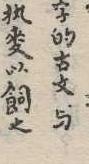 字的古文与
执麦以飼之